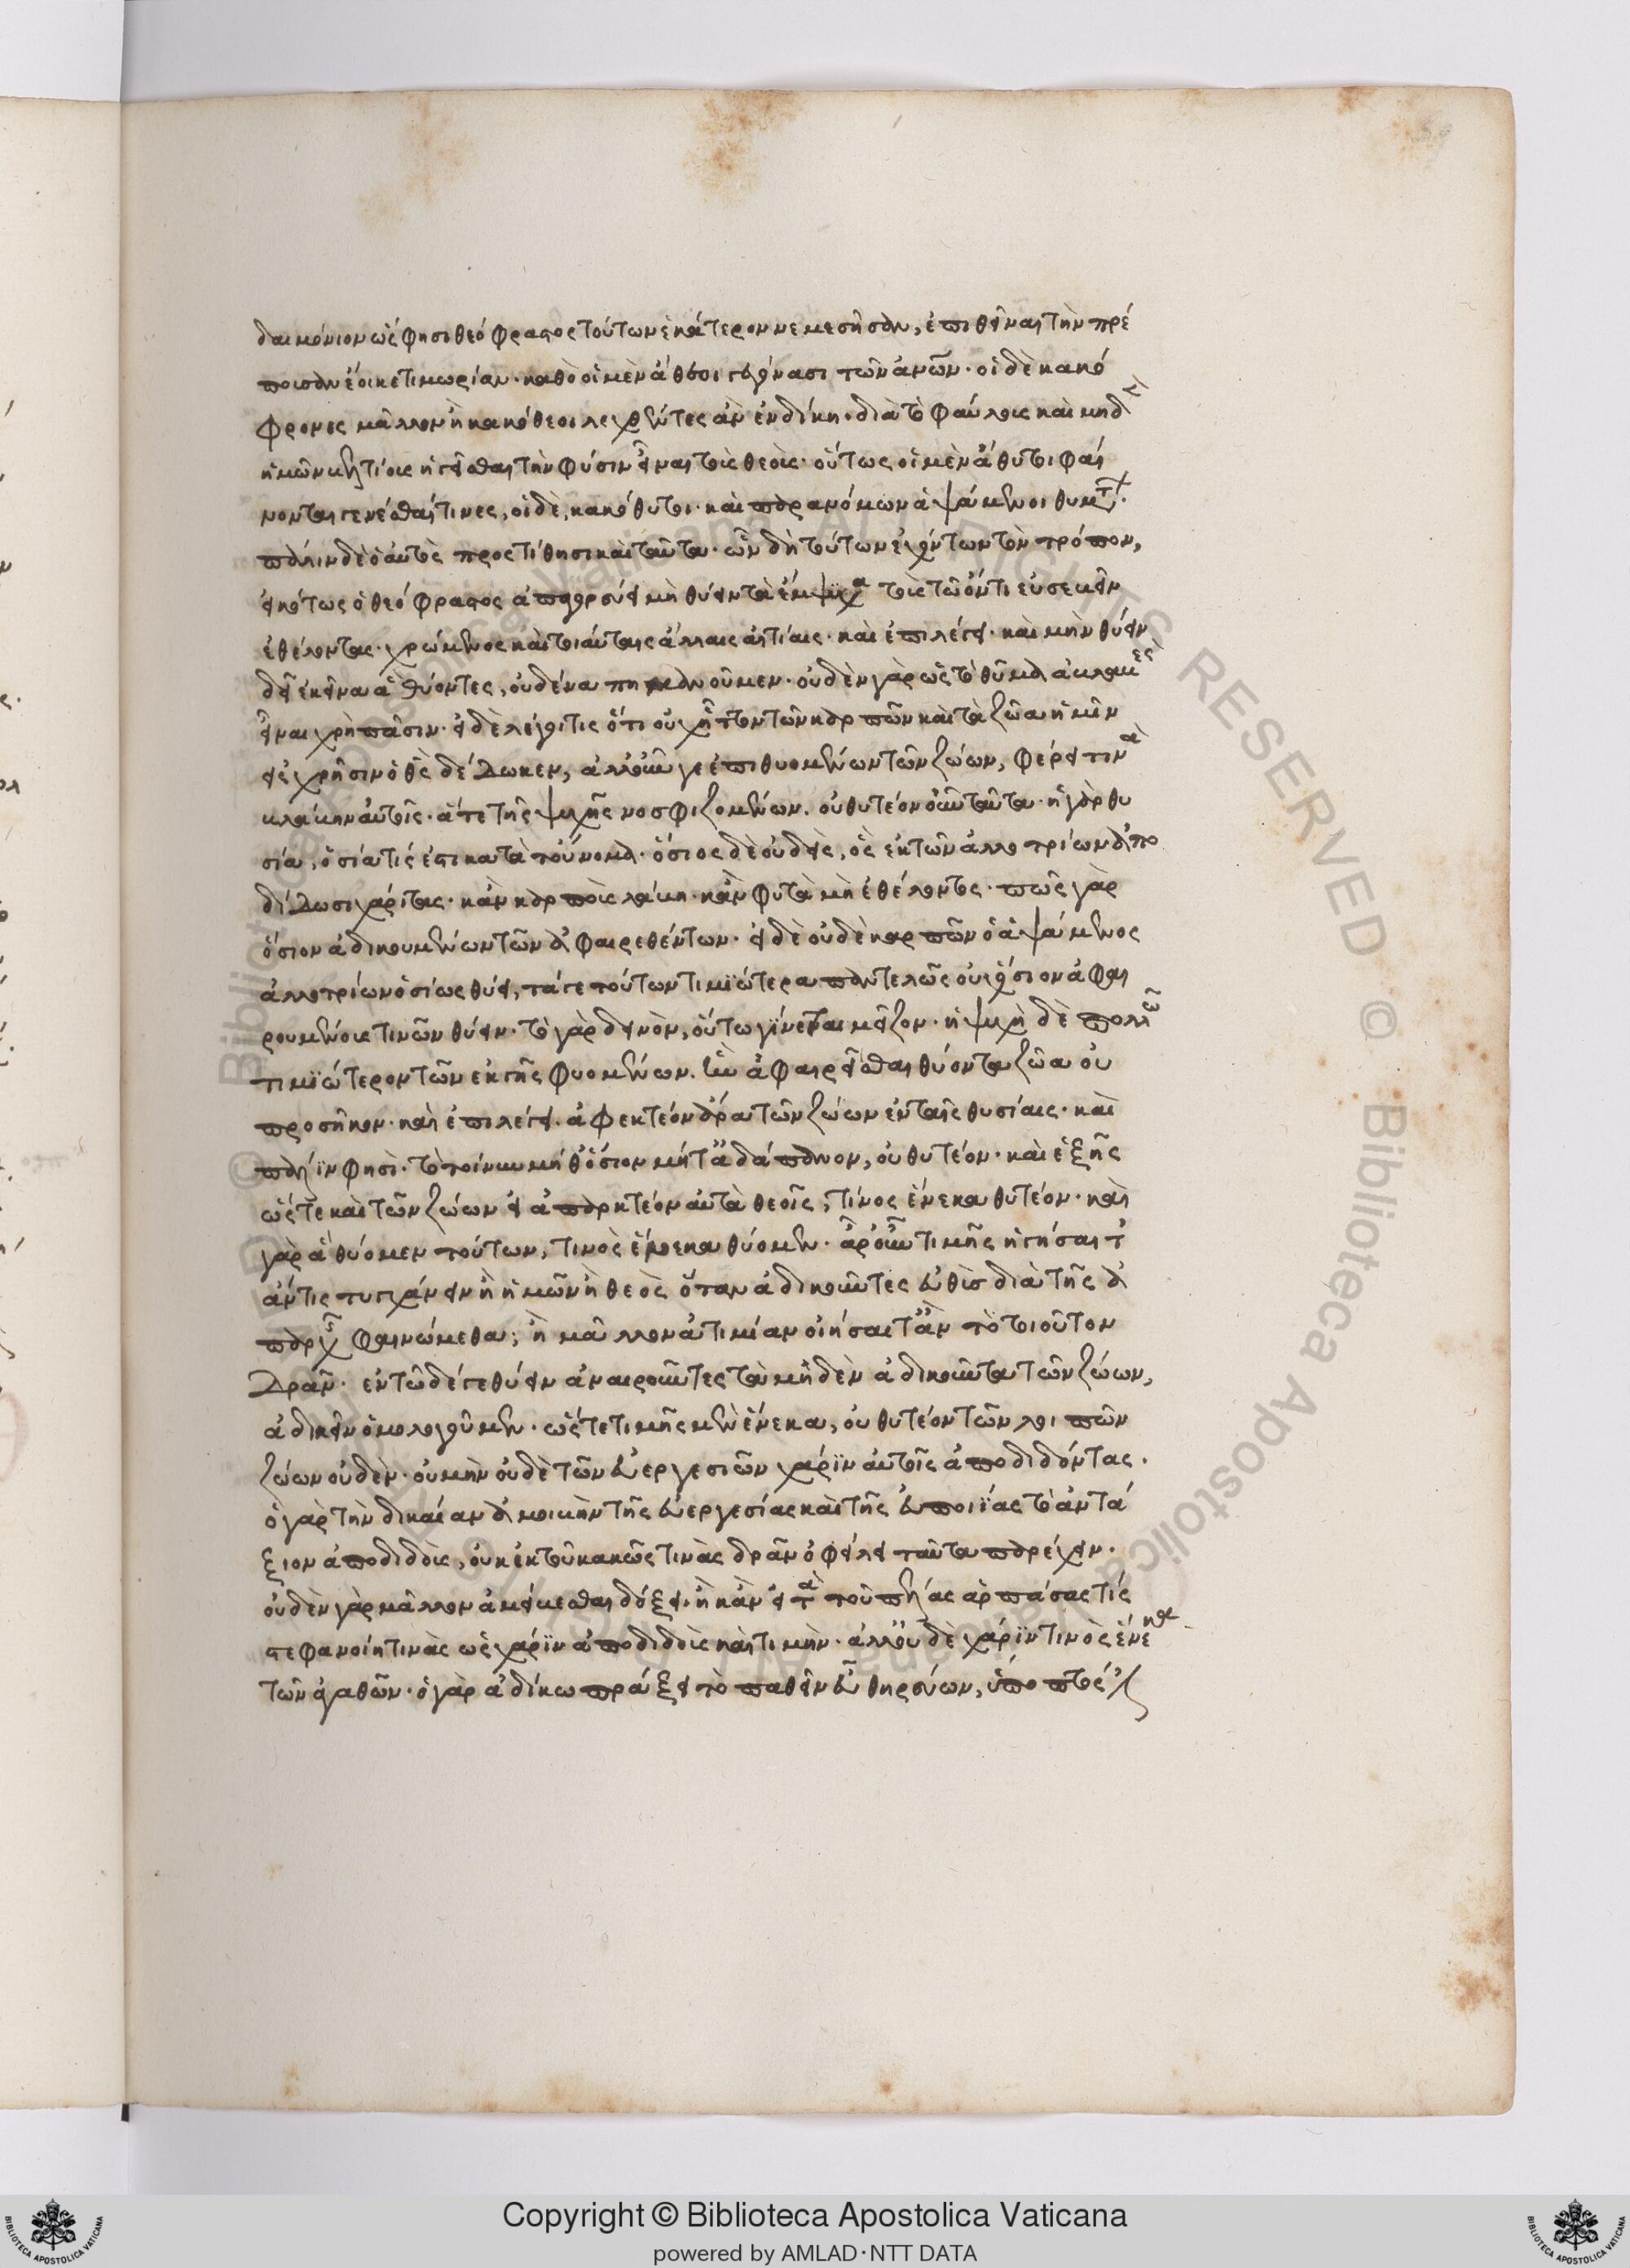 δαιμόνιον ὥς φησι θεόφραστος τούτων ἑκάτερον νεμεσῆσαν, ἐπιθεῖναι τὴν πρέ
πουσαν ἔοικε τιμωρίαν· καθὸ οἱ μὲν ἄθεοι γεγόνασι τῶν ἀνων· οἱ δὲ κακό
φρονες μᾶλλον ἢ κακόθεοι λεχθέντες ἂν ἐν δίκῃ· διὰ τὸ φαύλους καὶ μηδὲν
ἡμῶν βελτίους ἡγεῖσθαι τὴν φύσιν εἶναι τοὺς θεούς· οὕτως οἱ μὲν ἄθυτοι φαί
νονται γενέσθαι τινες, οἱ δὲ, κακόθυτοι· καὶ παρανόμων ἁψάμενοι θυμάτων.
πάλιν δὲ ὁ αὐτὸς προστίθησι καὶ ταῦτα· ὧν δὴ τούτων ἐχόντων τὸν τρόπον,
εἰκότως ὁ θεόφραστος ἀπαγορεύει μὴ θύειν τὰ ἔμψυχα τοὺς τῷ ὄντι εὐσεβεῖν
ἐθέλοντας· χρώμενος καὶ τοιαύταις ἄλλαις αἰτίαις· καὶ ἐπιλέγει· καὶ μὴν θύειν
δεῖ ἐκεῖνα ἃ θύοντες, οὐδένα πημανοῦμεν· οὐδὲν γὰρ ὡς τὸ θῦμα ἀβλαβὲς
εἶναι χρὴ πᾶσιν· εἰ δὲ λέγοι τις ὅτι οὐχ ἧττον τῶν καρπῶν καὶ τὰ ζῶα ἡμῖν
εἰς χρῆσιν ὁ θς δέδωκεν, ἀλλ' οὖν γε ἐπιθυομένων τῶν ζώων, φέρει τινὰ
βλάβην αὐτοῖς· ἅτε τῆς ψυχῆς νοσφιζομένων. οὐ θυτέον οὖν ταῦτα· ἡ γὰρ θυ
σία, ὁσία τίς ἐστι κατὰ τοὔνομα· ὅσιος δὲ οὐδεὶς, ὃς ἐκ τῶν ἀλλοτρίων ἀπο
δίδωσι χάριτας· κἂν καρποὺς λάβῃ· κἂν φυτὰ μὴ ἐθέλοντος· πῶς γὰρ
ὅσιον ἀδικουμένων τῶν ἀφαιρεθέντων· εἰ δὲ οὐδὲ καρπῶν ὁ ἁψάμενος
ἀλλοτρίων ὁσίως θύει, τά γε τούτων τιμιώτερα παντελῶς οὐχ ὅσιον ἀφαι
ρουμένους τινῶν θύειν· τὸ γὰρ δεινὸν, οὕτω γίνεται μεῖζον· ἡ ψυχὴ δὲ πολλῷ
τιμιώτερον τῶν ἐκ γῆς φυομένων. ἣν ἀφαιρεῖσθαι θύοντα ζῶα οὐ
προσῆκον· καὶ ἐπιλέγει. ἀφεκτέον ἄρα τῶν ζώων ἐν ταῖς θυσίαις· καὶ
πάλιν φησὶ· τὸ τοίνυν μήθ' ὅσιον μήτ' ἀδάπανον, οὐ θυτέον· καὶ ἑξῆς
ὥστε καὶ τῶν ζώων εἰ ἀπαρκτέον αὐτὰ θεοῖς, τίνος ἕνεκα θυτέον· καὶ
γὰρ ἃ θύομεν τούτων, τινὸς ἕνεκα θύομεν· ἆρ' οὖν τιμῆς ἡγήσαιτ'
ἄν τις τυγχάνειν ἢ ἡμῶν ἢ θεὸς ὅταν ἀδικοῦντες εὐθὺς διὰ τῆς ἀ
παρχῆς φαινώμεθα; ἢ μᾶλλον ἀτιμίαν οἰήσαιτ' ἂν τὸ τοιοῦτον
Δρᾶν· ἐν τῷ δέ γε θύειν ἀναιροῦντες τὰ μηδὲν ἀδικοῦντα τῶν ζώων,
ἀδικεῖν ὁμολογοῦμεν· ὥστε τιμῆς μὲν ἕνεκα, οὐ θυτέον τῶν λοιπῶν
ζώων οὐδὲν· οὐ μὴν οὐδὲ τῶν εὐεργεσιῶν χάριν αὐτοῖς ἀποδιδόντας.
ὁ γὰρ τὴν δικαίαν ἀμοιβὴν τῆς εὐεργεσίας καὶ τῆς εὐποιΐας τὸ ἀντά
ξιον ἀποδιδοὺς, οὐκ ἐκ τοῦ κακῶς τινὰς δρᾶν ὀφείλει ταῦτα παρέχειν.
οὐδὲν γὰρ μᾶλλον ἀμείβεσθαι δόξει, ἢ κἂν εἰ τὰ τοῦ πέλας ἁρπάσας τίς
στεφανοίη τινὰς ὡς χάριν ἀποδιδοὺς καὶ τιμὴν· ἀλλ' οὐδὲ χάριν τινὸς ἕνεκα
τῶν ἀγαθῶν· ὁ γὰρ ἀδίκῳ πράξει τὸ παθεῖν εὖ θηρεύων, ὕποπτός